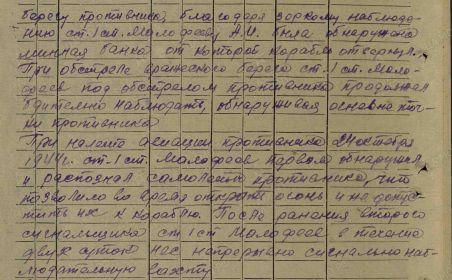 берегу противника, благодаря зоркому наблюде-
нию ст. 1 ст. Молофееву А.И. была обнаружена
минная банка от которой корабль отвернул.
При обстреле вражеского берега ст. 1 ст. Моло-
феев под обстрелом противника продолжал
бдительно наблюдать, обнаруживая огневые точ-
ки противника
При налете авиации противника 24 октября
1944г. ст. 1 ст. Молофеев первым обнаружил
и распознал самолеты противника, что
позволило во время открыть огонь и не допус-
тить их к кораблю. После ранения второго
сигнальщика ст 1 ст Молофеев в течение
двух суток нес непрерывно сигнально наб-
людательную вахту